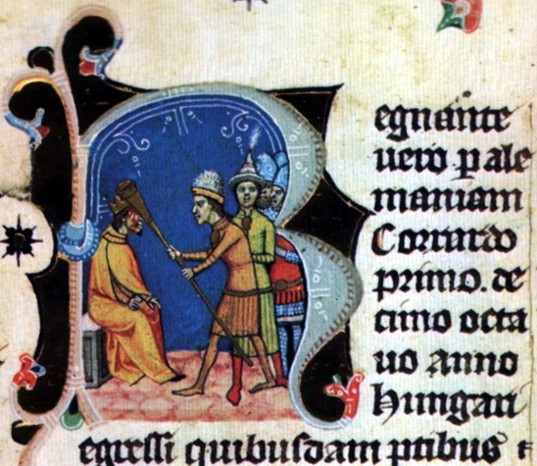 Regnante
uero p ale
maniam
Corrardo
primo. de
cimo octa
uo anno
hungari
egressi quibusdam ptibus